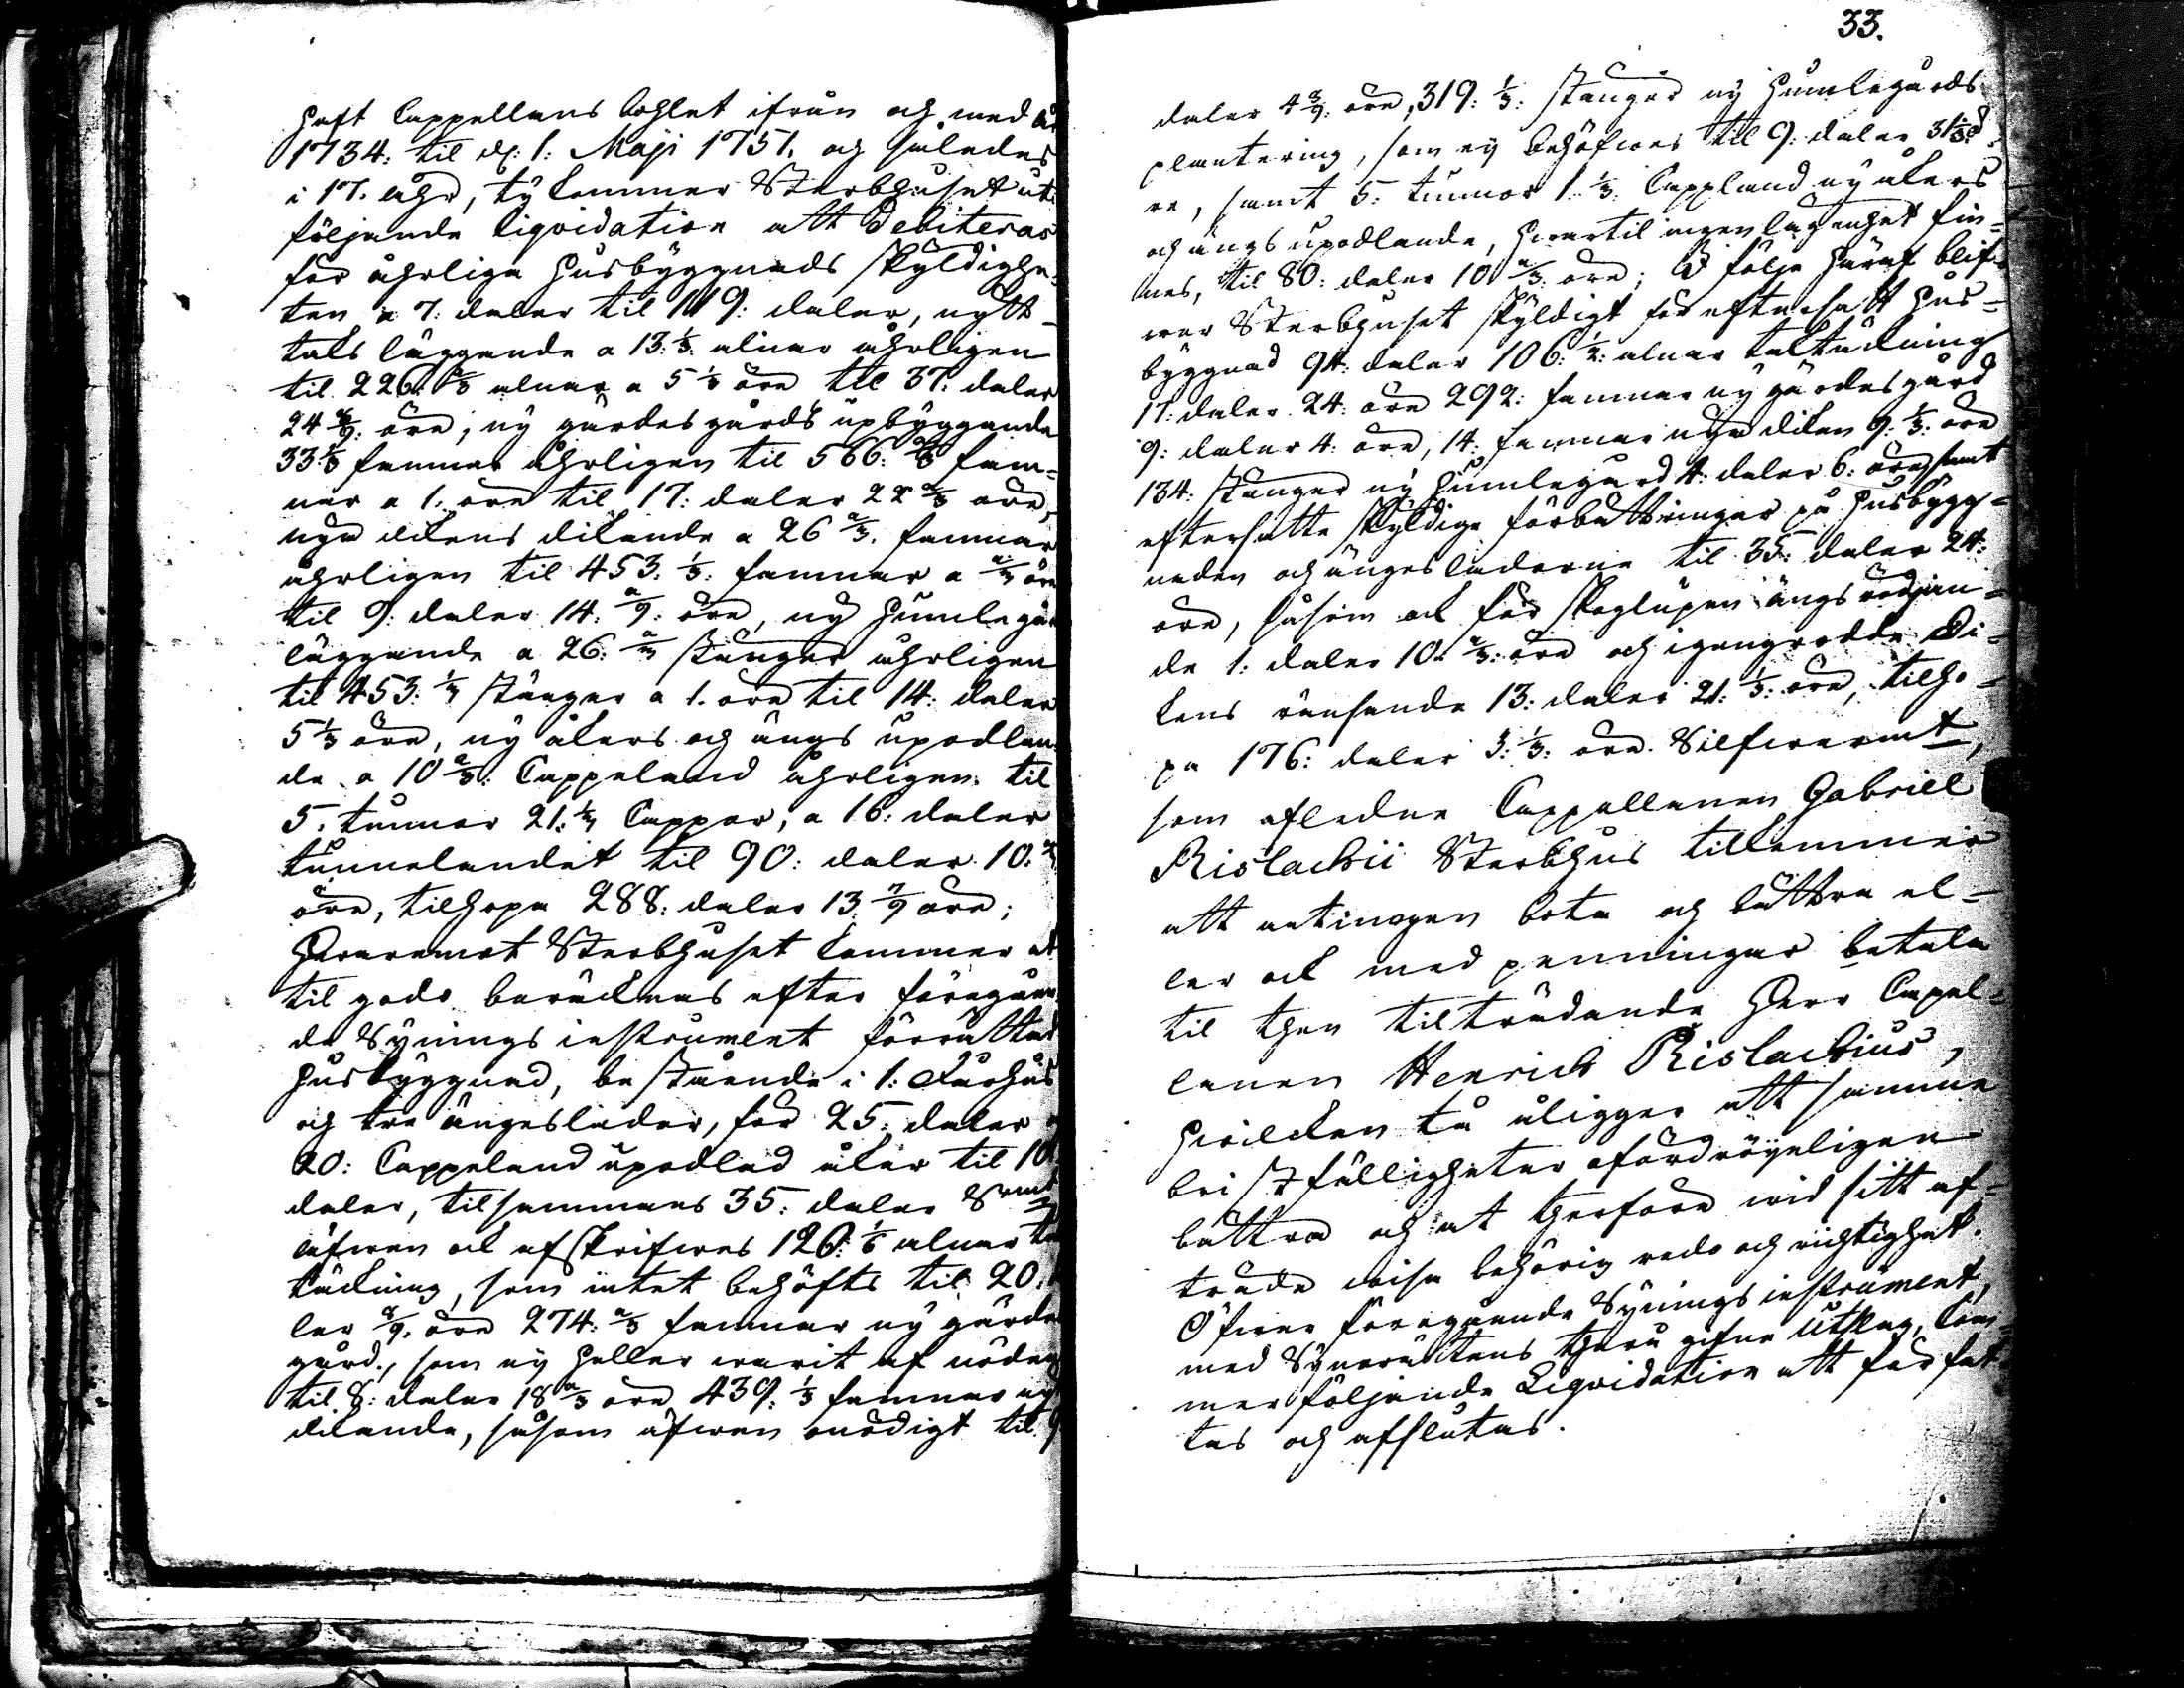 haft Cappellans bohlet ifrån och med år
1734: til d: 1: Maji 1751. og således
i 17. åhr, ty kommer Sterbhuset uti
föl jande liqvidation att debiteras
för åhrliga husbyggnads skyldighe-
ten a 7: daler til 119: daler, nytt
taks läggande a 13:⅓ alnar åhrligen
til 226:⅔ alnar a 5⅓ öre til 37: daler
24 8/9: öre; ny gärdesgårds upbyggande
33:⅓ famnar åhrligen til 566:⅔ fam-
nar a 1: öre til 17: daler 22⅔ öre,
nya dikens dikande a 26⅔. famnar
åhrligen til 453:⅓: famnar a ⅔ öre
til 9: daler 14: 2/9: öre, ny humlegår
läggande a 26:⅔ stänger åhrligen
til 453:⅓ stänger a 1. öre til 14: daler
5⅓ öre, ny åkers och ängs upodlan
de a 10⅔: Cappeland åhrligen til
5. tunnor 21:⅓ Cappar, a 16: daler
tunnelandet til 90: daler 10.⅔
öre, tilhopa 288: daler 13 7/9 öre;
Hwaremot Sterbhuset kommer at
til godo beräknas efter föregåen
de Synings instrument förrättad
husbyggnad, bestående i 1: Fårhus
och tre ängeslador, för 25: daler
20: Cappeland upodlad åker til 10
daler, tilsammans 35: daler Smt
äfwen ock afskrifwes 120:⅙ alnar ta
täckning, som intet behöfts til 20:
ler 8/9. öre 274:⅔ famnar ny gärdes
gård, som ey heller warit af nöden
til 8: daler 18⅔ öre 439:⅓ famnar ny
dikande, såsom äfwen onödigt til 9
33.
daler 4 8/9: öre, 319:⅓: stänger ny humlegårds
plantering, som ey behöfwes til 9: daler 31⅓ ö
re, samt 5: tunnor 1⅓ Cappland ny åkers
och ängs upodlande, hwartil ingen lägenhet fin-
nes, til 80: daler 10⅔: öre; I följe häraf blif-
wer Sterbhuset skyldigt för eftersatt hus-
byggnad 94: daler 106:½: alnar taktäckning
17: daler 24: öre 292: famnar ny gärdesgård
9: daler 4: öre, 14: famnar nya diken 9:⅓: öre
134: stänger ny humlegård 4: daler 6: öre, samt
eftersatte skyldige förbättringar på husbygg-
naden och ängesladorne til 35: daler 24:
öre, såsom ock för skoglupen ängs rödjan-
de 1: daler 10.⅔: öre och igengrodde Di-
kens ränsande 13: daler 21:⅓: öre, tilho-
pa 176: daler 3:⅓: öre Silfwermt,
som afledne Cappellanen Gabriel
Rislachii Sterbhus tillkommer
att antingen bota och bättra el-
ler ock med penningar betala
til then tilträdande Herr Capel-
lanen Henrich Rislachius,
hwilcken tå åligger att samma
bristfälligheter ofördröyeligen
bättra och at therföre wid sitt af-
träde wisa behörig redo och richtighet.
Öfwer föregående Synings instrument,
med Synerättens theruti gifne Utslag, kom-
mer följande Liqvidation att förfat
tas och afslutas.